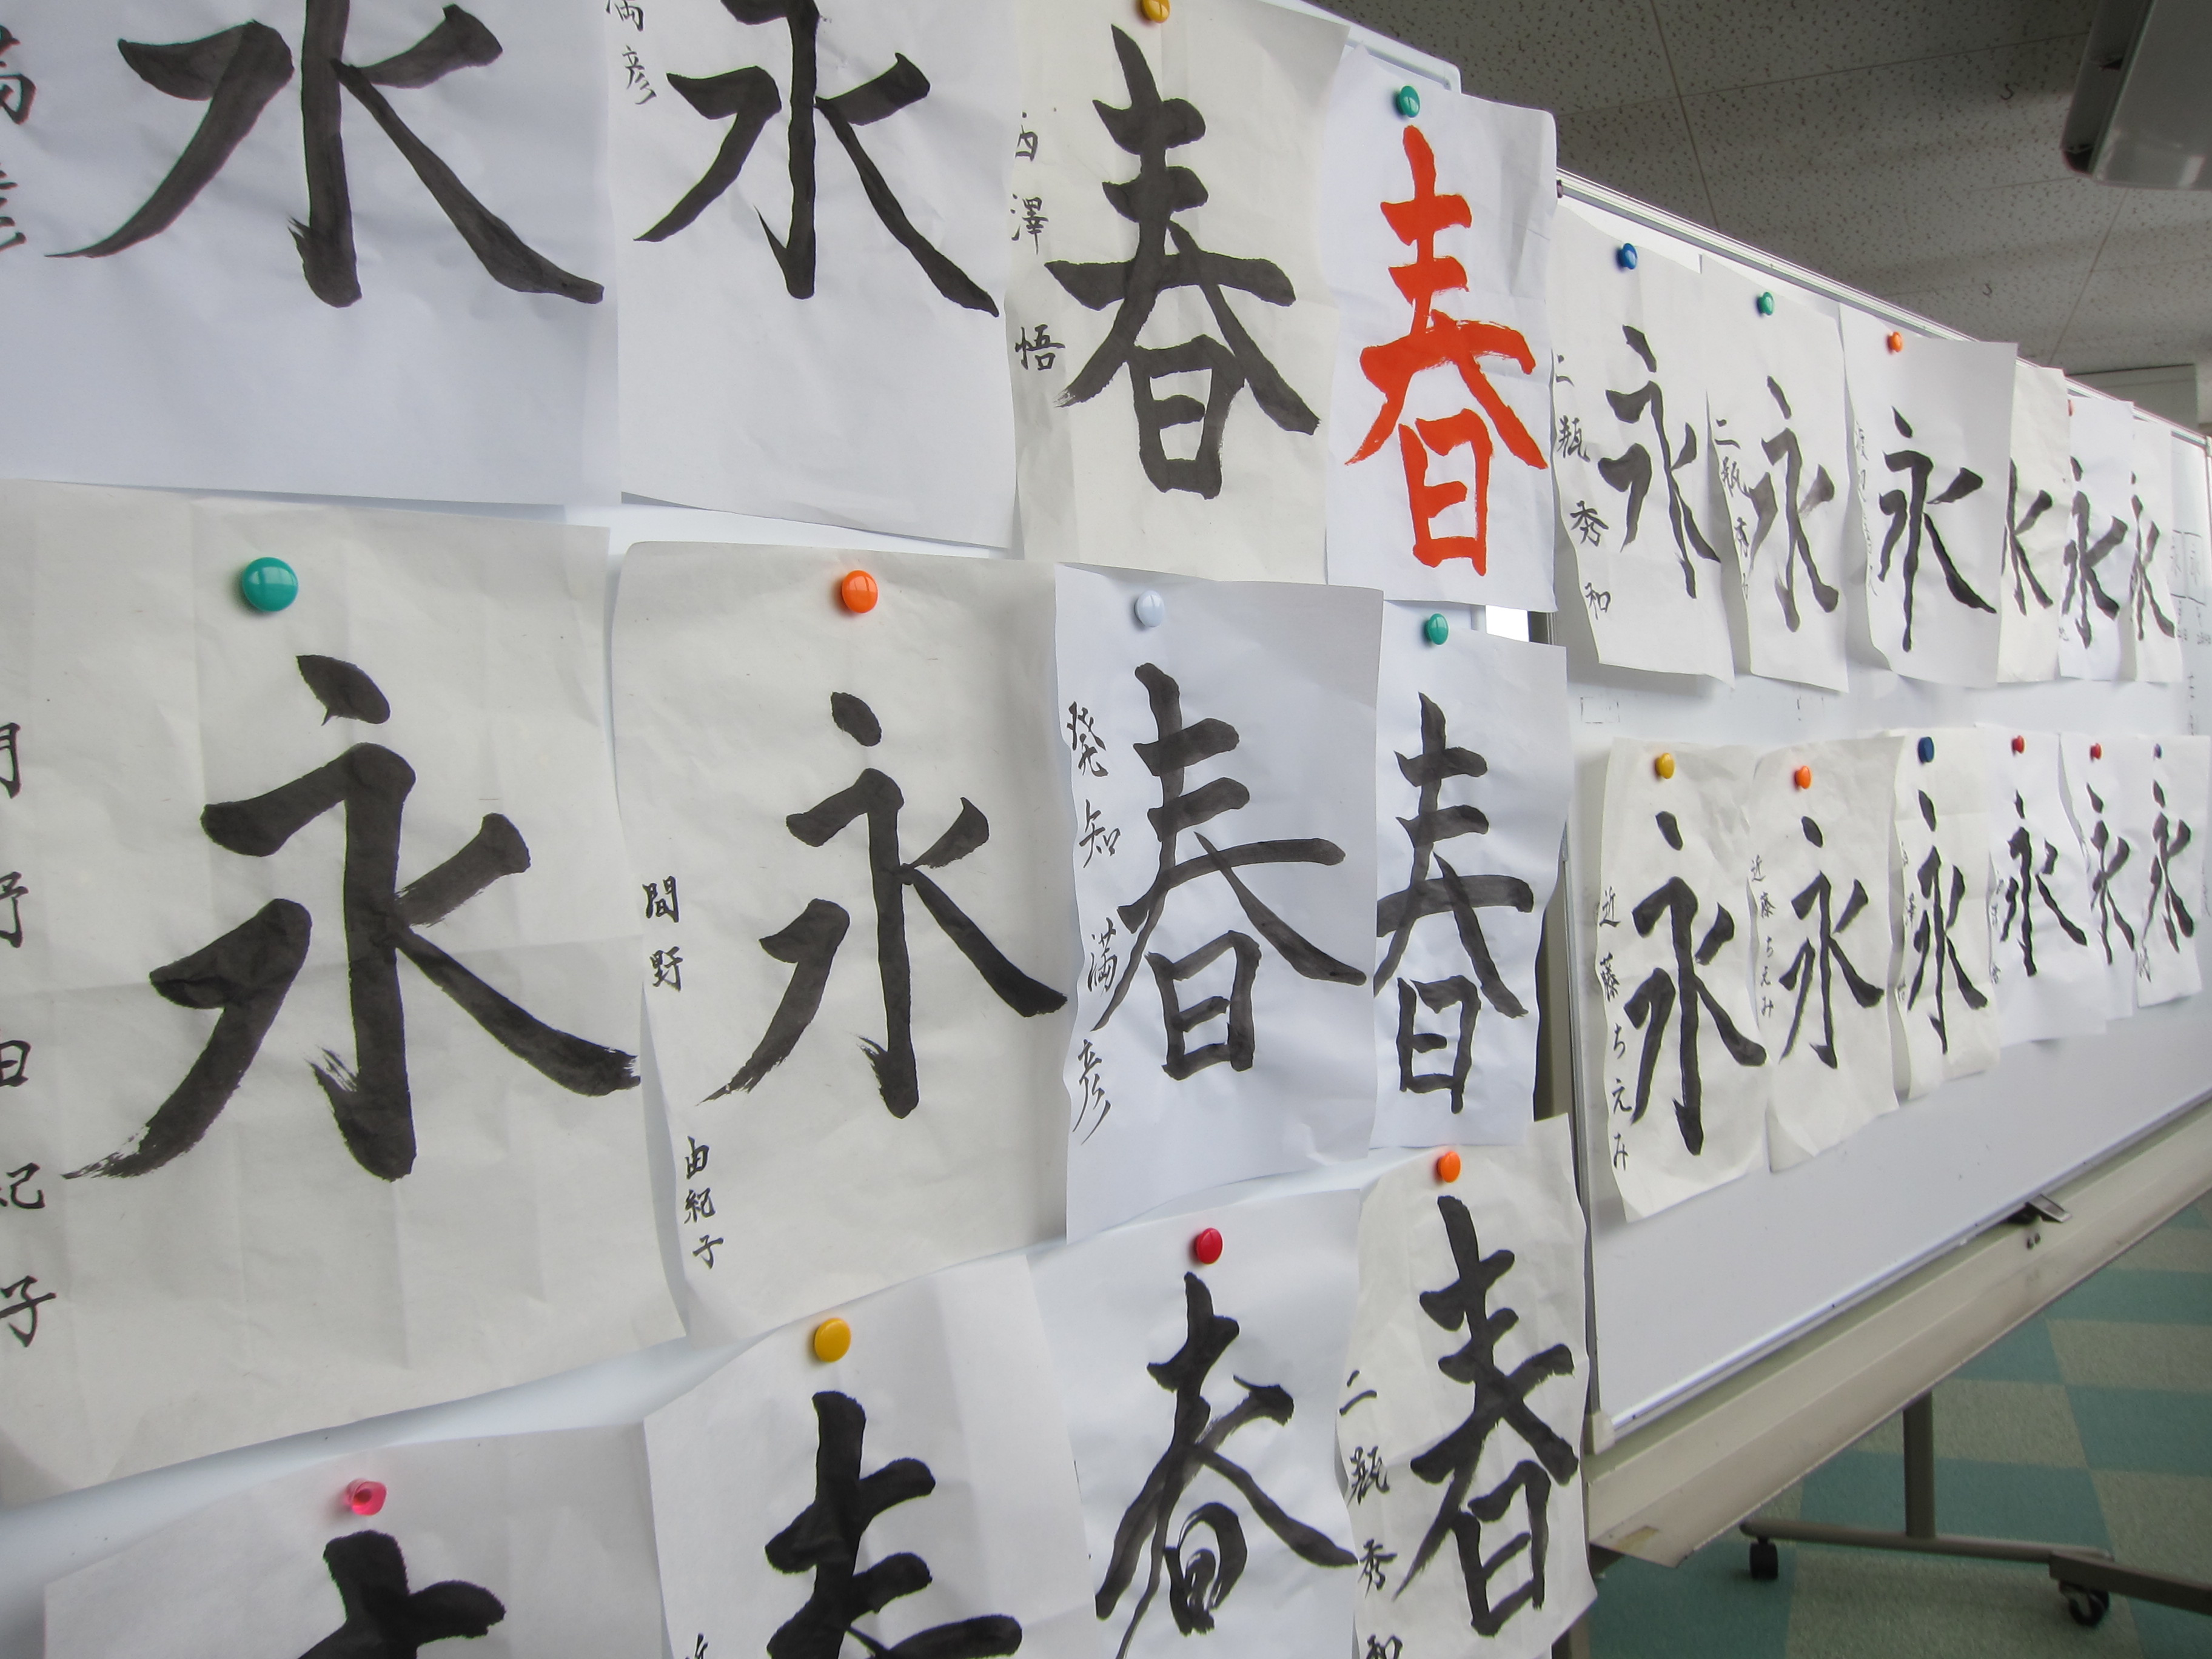 永
満彦
永
西澤 悟
春
春
二瓶 秀和
永
二瓶 秀
永
永
永
永
間野由紀子
永
間野 由紀子
永
発知 満彦
春
春
近藤 ちえみ
永
近藤 ちえみ
永
永
永
永
永
春
二瓶 秀和
春